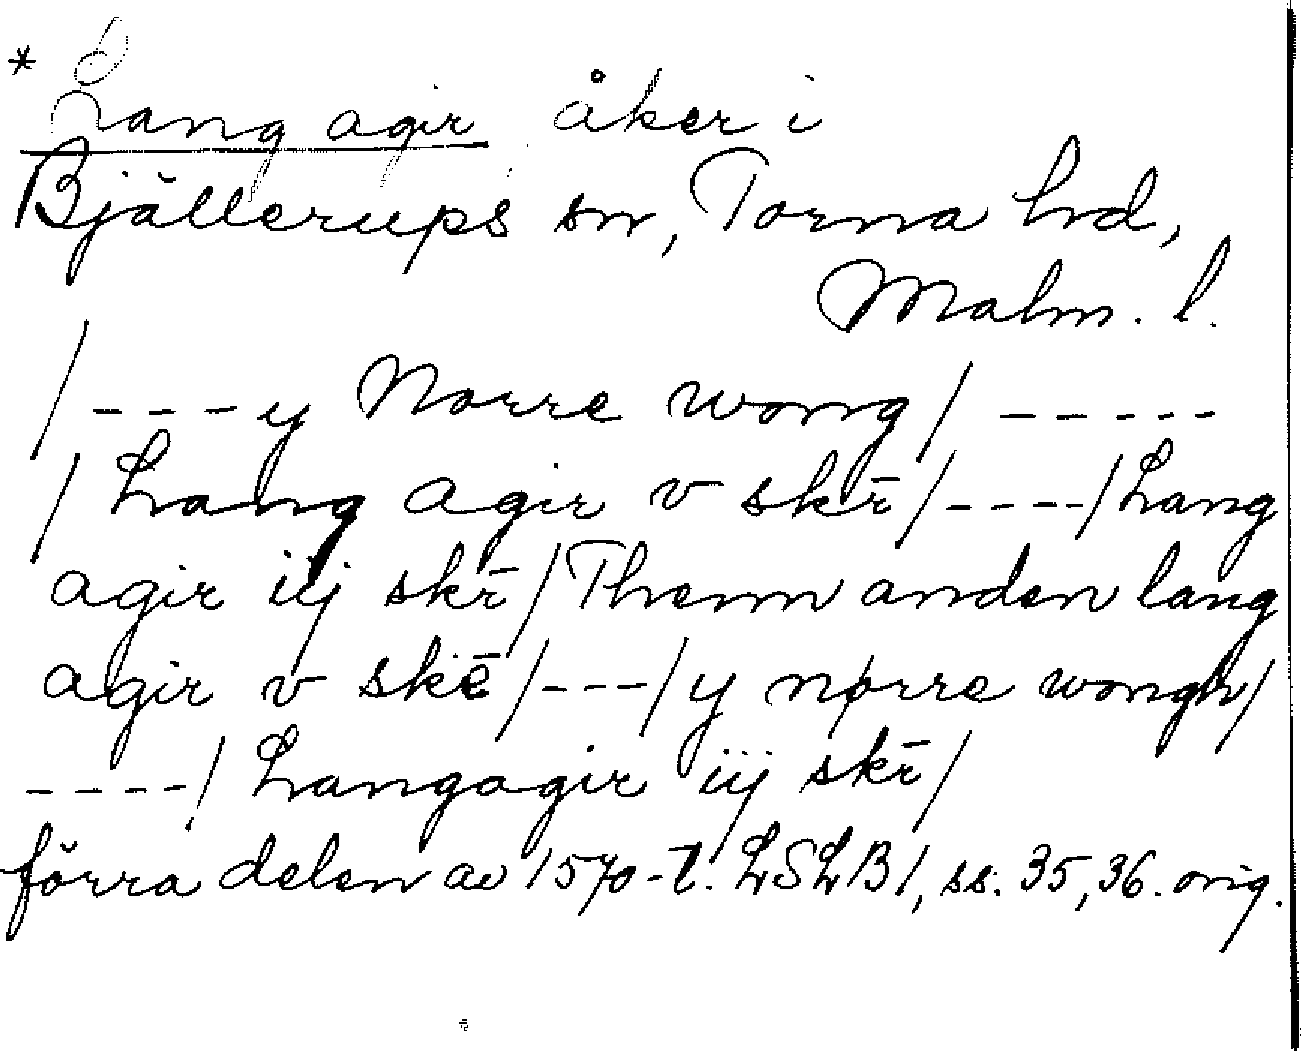 *
Lang agir åker i
Bjällerups sn, Torna hd,
Malm. l.
/----y Norre wong/-----
/Lang agir v skr̄/----/Lang
agir iij skr̄/Thenn anden lang
agir v skē/---/y nørre wongh/
----/Langagir iij skr̄/
förra delen av 1570-t. LSLB1, ss. 35, 36. orig.